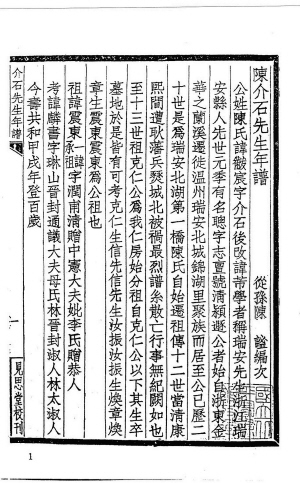 陳介石先生年譜
從孫陳 謐編次
公姓陳氏諱黻宸字介石後改諱芾學者稱瑞安先生浙江瑞
安縣人先世元季有名聰字志亶號清穎遯公者始自浙東金
華之蘭溪遷徙溫州瑞安北城錦湖里聚族而居至公已歷二
十世是爲瑞安北湖第一橋陳氏自始遷祖傳十二世當清康
熙間遭耿藩兵燹城北被禍最烈譜系散亡行事無紀闕如也
至十三世祖克仁公爲我仁房始分祖自克仁公以下其生卒
墓地於是皆有可考克仁生信先信先生汝振汝振生煥章煥
章生震東震東爲公祖也
祖諱震東一諱承祖字潤甫清贈中憲大夫妣李氏贈恭人
考諱麟書字琳山晉封通議大夫母氏林晉封淑人林太淑人
今壽共和甲戌年登百歲
介石先生年譜
一
見思堂校刊
1